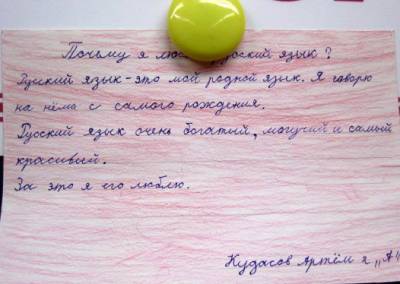 Почему я люб русский язык?
Русский язык - это мой родной язык. Я говорю
на нёма с самого рождения.
Русский язык очень богатый, могучий и самый
красивый.
За это я его люблю.
Кудасов Артём 2 "А"